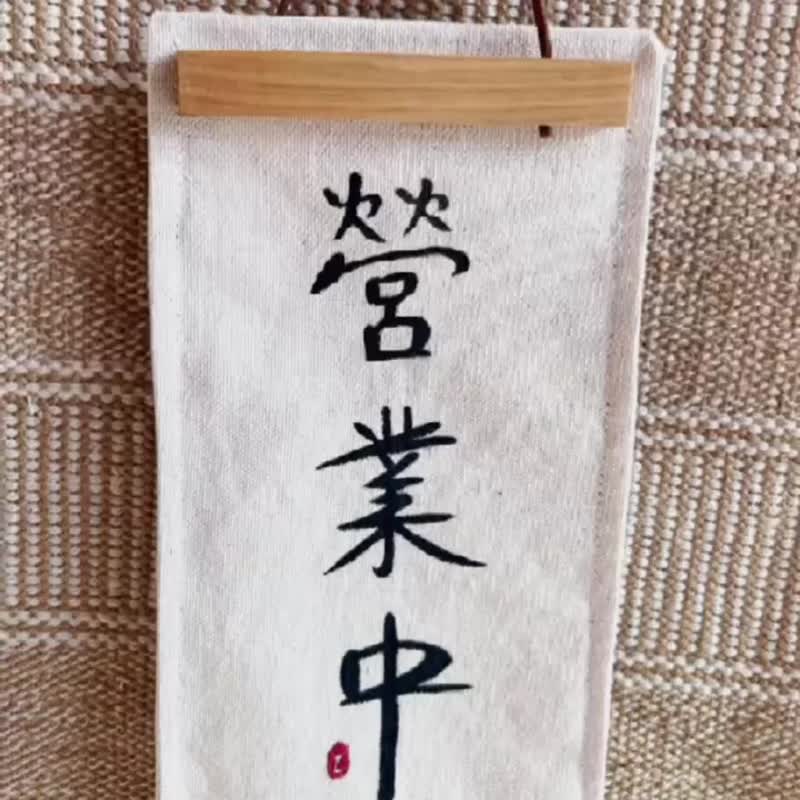 營業中